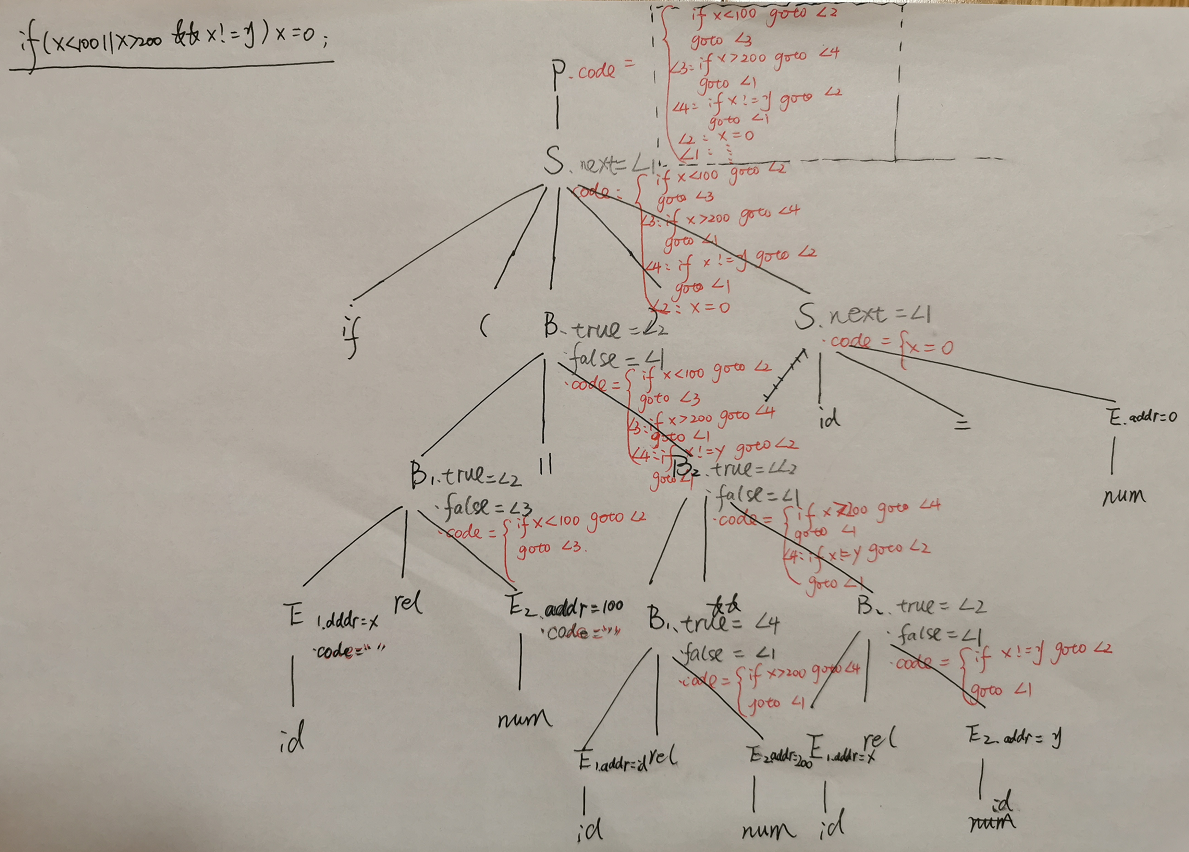 if(x<100||x>200 && x!=y) x=0;
P.code =
if x<100 goto L2
goto L3
L3: if x>200 goto L4
goto L1
L4: if x!=y goto L2
goto L1
L2: x=0
L1: ⋮
S.next=L1
code=
if x<100 goto L2
goto L3
L3: if x>200 goto L4
goto L1
L4: if x!=y goto L2
goto L1
L2: x=0
if ( B.true=L2 ) S.next=L1
.false=L1
.code = {x=0
.code=
if x<100 goto L2
goto L3
L3: if x>200 goto L4
goto L1
L4: if x!=y goto L2
goto L1
id = E.addr=0
num
B1.true=L2 || B2.true=L2
.false=L3
.code=
if x<100 goto L2
goto L3.
.false=L1
.code=
if x>200 goto L4
goto L1
L4: if x!=y goto L2
goto L1
E1.addr=x rel E2.addr=100
.code="" .code=""
id num
B1.true=L4 && B2.true=L2
.false=L1 .false=L1
.code=
if x>200 goto L4
goto L1
.code=
if x!=y goto L2
goto L1
E1.addr=id rel E2.addr=200 E1.addr=x rel E2.addr=y
id num id id
num